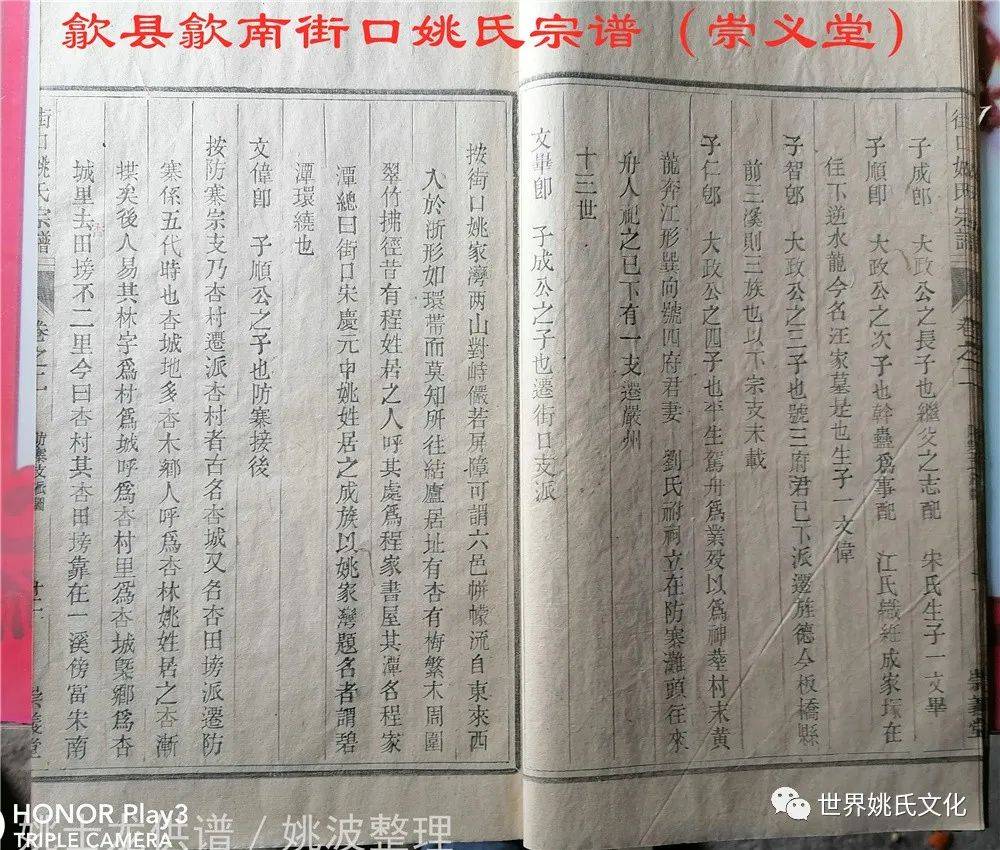 歙县歙南街口姚氏宗谱（崇义堂）
子成郎　大政公之長子也繼父之志配　宋氏生子一文畢
子順郎　大政公之次子也幹蠱爲事配　江氏織絍成家塚在
住下逆水龍今名汪家墓是也生子一文偉
子智郎　大政公之三子也號三府君已下派遷旌德今板橋縣
前三溪則三族也以下宗支未載
子仁郎　大政公之四子也平生駕舟爲業殁以爲神葬村末黄
龍奔江形巽向號四府君妻　劉氏祔祠立在防寨灘頭往來
舟人祀之已下有一支遷嚴州
十三世
文畢郎　子成公之子也遷街口支派
按街口姚家灣两山對峙儼若屏障可謂六邑帡幪流自東來西
入於浙形如環帶而莫知所往結廬居址有杏有梅繁木周圍
翠竹拂徑昔有程姓居之人呼其處爲程家書屋其潭名程家
潭總曰街口宋慶元中姚姓居之成族以姚家灣題名者謂碧
潭環繞也
文偉郎　子順公之子也防寨接後
按防寨宗支乃杏村遷派杏村者古名杏城又名杏田塝派遷防
寨係五代時也杏城地多杏木鄉人呼爲杏林姚姓居之杏漸
拱矣後人易其林字爲村爲城呼爲杏村里爲杏城槩鄉爲杏
城里去田塝不二里今曰杏村其杏田塝靠在一溪傍富宋南
街口姚氏宗譜
卷之一
廿一
崇義堂
街口姚氏宗譜
卷之一
崇義堂
HONOR Play3
TRIPLE CAMERA
供谱 / 姚波整理
世界姚氏文化